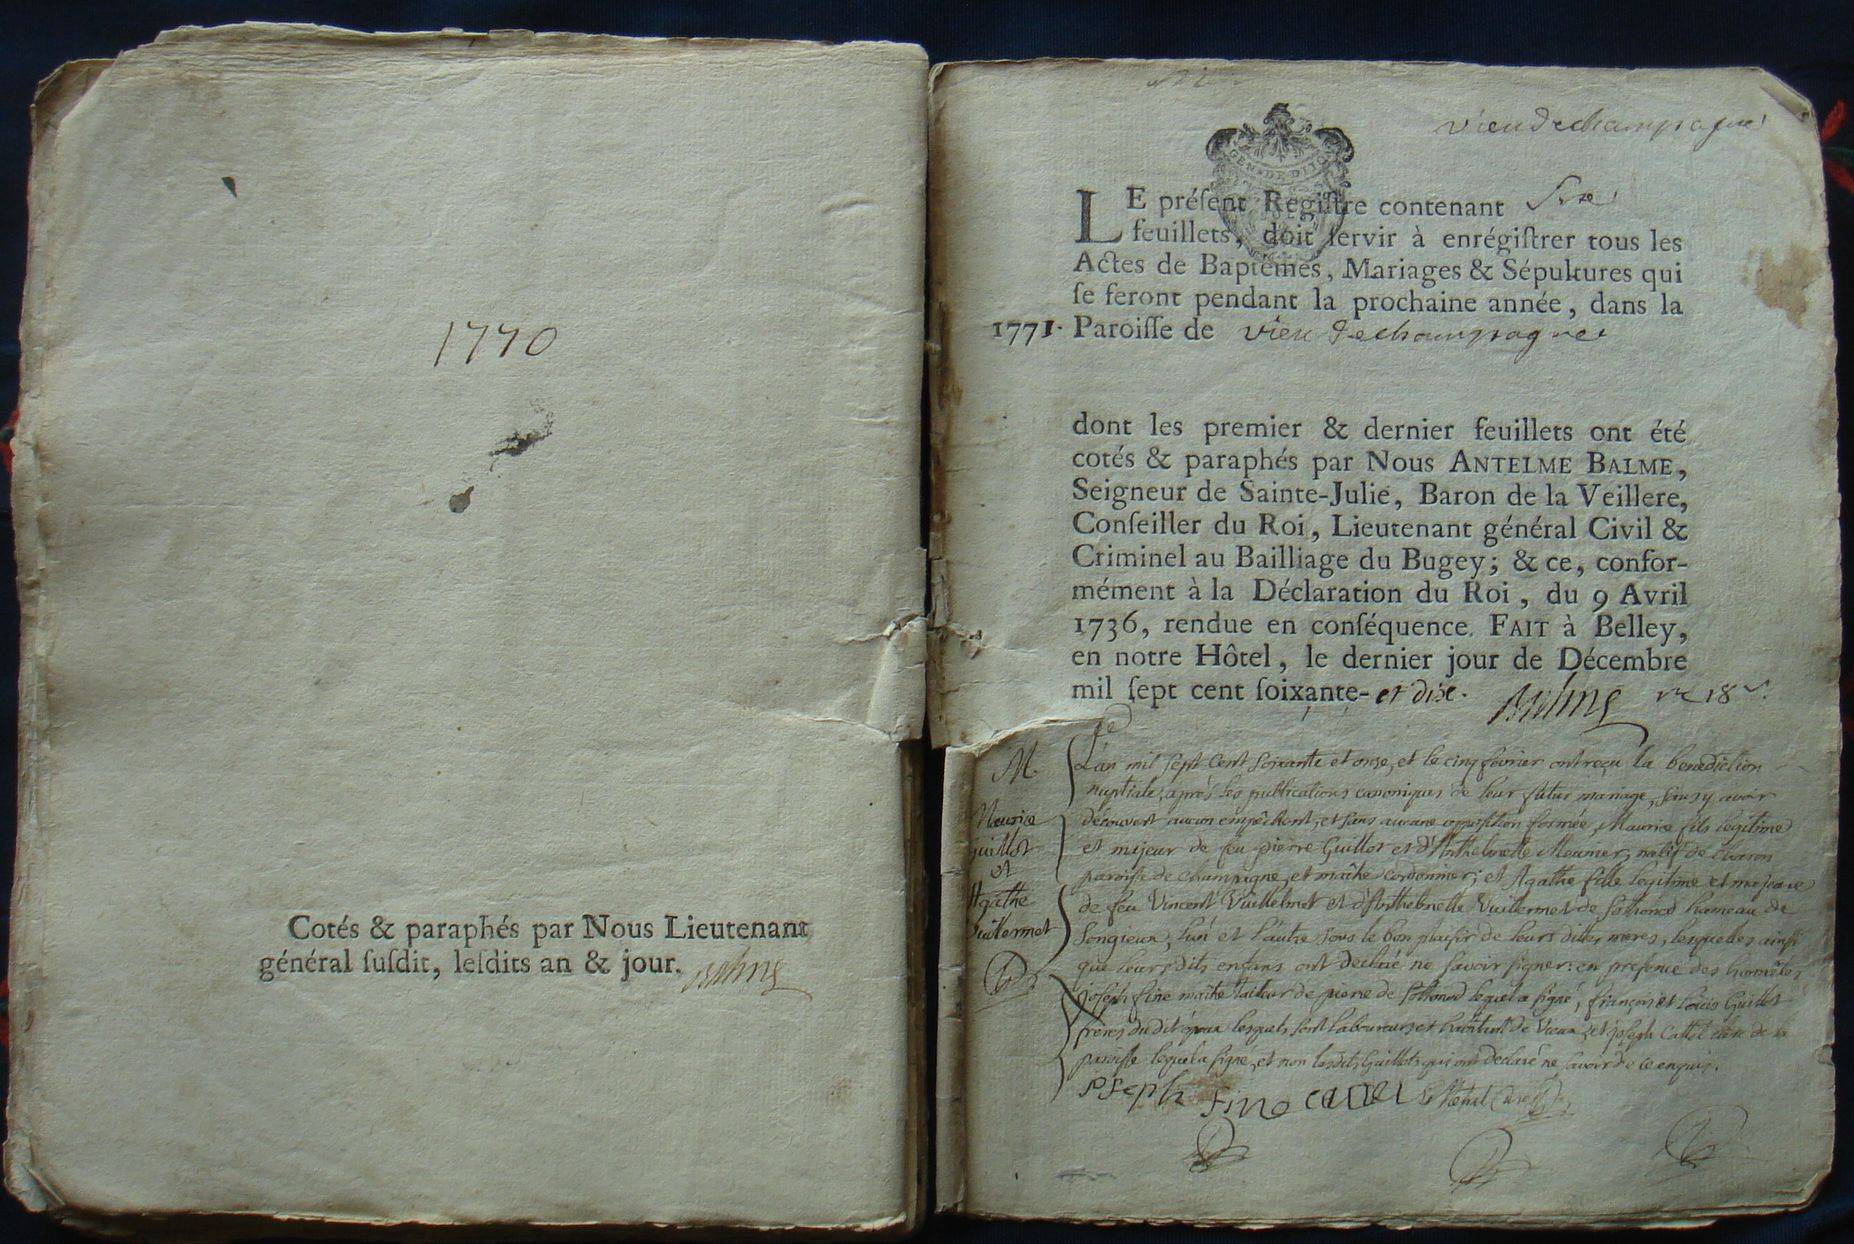 1770
Cotés & paraphés par Nous Lieutenant
général ſuſdit, leſdits an & jour. Balme
vieu de champagne
GEN DE DIJO
LE préſent Regiſtre contenant
feuillets, doit ſervir à enrégiſtrer tous les
Actes de Baptêmes, Mariages & Sépultures qui
ſe feront pendant la prochaine année, dans la
1771. Paroiſſe de vieu de champagne
dont les premier & dernier feuillets ont été
cotés & paraphés par Nous ANTELME BALME,
Seigneur de Sainte-Julie, Baron de la Veillere,
Conſeiller du Roi, Lieutenant général Civil &
Criminel au Bailliage du Bugey; & ce, confor-
mément à la Déclaration du Roi, du 9 Avril
1736, rendue en conſéquence. FAIT à Belley,
en notre Hôtel, le dernier jour de Décembre
mil ſept cent ſoixante- et dix. Balme
M.
Maurice
guillot
et
Agathe
vuillermet
L'an mil sept cent soixante et onze, et le cinq février ont reçu la benediction
nuptiale, après les publications canoniques de leur futur mariage, sans y avoir
découvert aucun empêchent, et sans aucune opposition formée, Maurice fils legitime
et majeur de feu pierre Guillot et d'Anthelmette Meunier, natif de
paroisse de champagne, et maitre cordonnier; et Agathe fille legitime et majeure
de feu Vincent Vuillermet et d'Anthelmette Vuillermet de Sothonod hameau de
Songieux, l'un et l'autre sous le bon plaisir de leurs dittes meres, lesquelles ainsi
que leurs dits enfans ont declaré ne savoir signer: en presence des honnêtes
joseph fine maitre tailleur de pierre de Sothonod lequel a signé, françois et Louis Guillot
frères du dit époux lesquels sont laboureurs et habitant de Vieu, et joseph Cattel de
paroisse lequel a signé, et non lesdits Guillots qui ont declaré ne savoir de ce enquis.
Joseph Fine catel